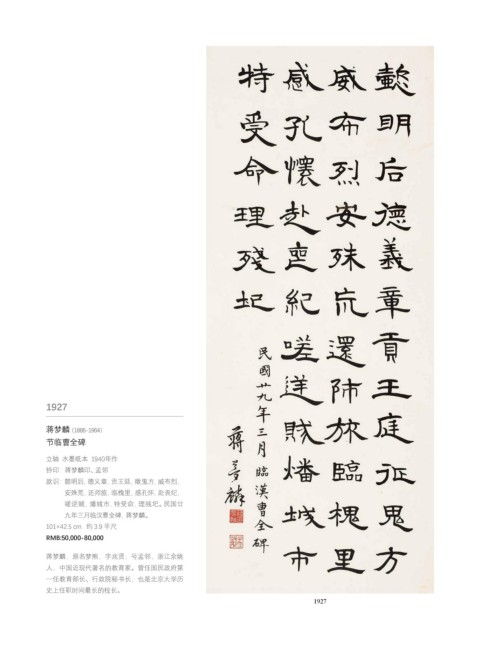 懿明后德義章貢王庭征鬼方
威布烈安殊亢還師旅臨槐里
感孔懷赴喪紀嗟逆賊燔城市
特受命理殘圮
民國廿九年三月臨漢曹全碑
蔣夢麟
1927
蒋梦麟（1886-1964）
节临曹全碑
立轴 水墨纸本 1940年作
钤印：蒋梦麟印、孟邻
款识：懿明后，德义章，贡王廷，徵鬼方，威布烈，
安殊荒，还师旅，临槐里，感孔怀，赴丧纪，
嗟逆贼，燔城市，特受命，理残圮。民国廿
九年三月临汉曹全碑，蒋梦麟。
101×42.5 cm 约3.9平尺
RMB:50,000-80,000
蒋梦麟，原名梦熊，字兆贤，号孟邻，浙江余姚
人，中国近现代著名的教育家。曾任国民政府第
一任教育部长、行政院秘书长，也是北京大学历
史上任职时间最长的校长。
1927